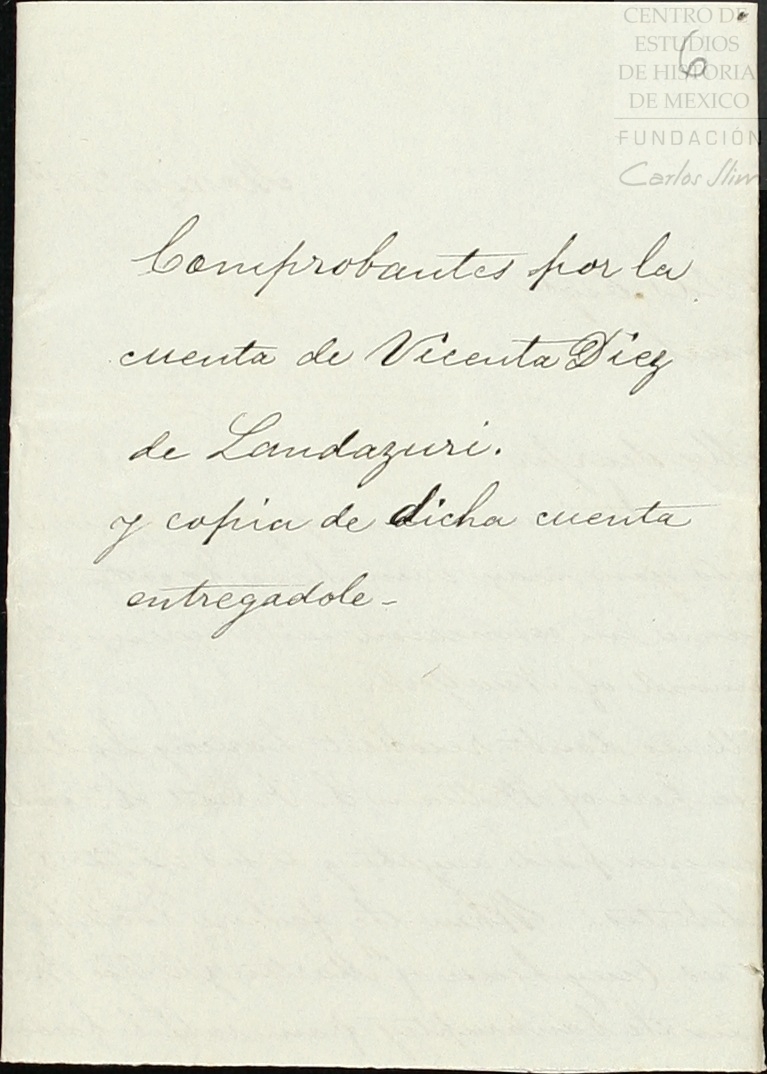 CENTRO DE
ESTUDIOS
DE HISTORIA
DE MEXICO
FUNDACIÓN
Carlos Slim
6
Comprobantes por la
cuenta de Vicenta Diez
de Landazuri.
y copia de dicha cuenta
entregadole-